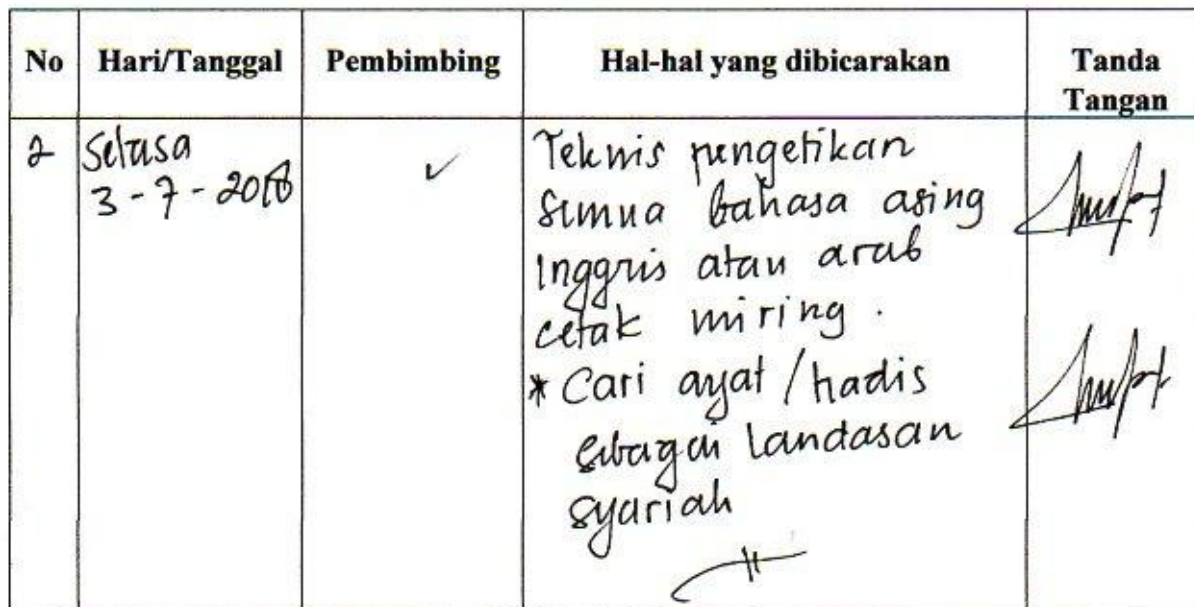 No Hari/Tanggal Pembimbing Hal-hal yang dibicarakan Tanda Tangan
2 Selasa
3-7-2018
✓
Teknis pengetikan
semua bahasa asing
Inggris atau arab
cetak miring.
* Cari ayat/hadis
sebagai landasan
syariah